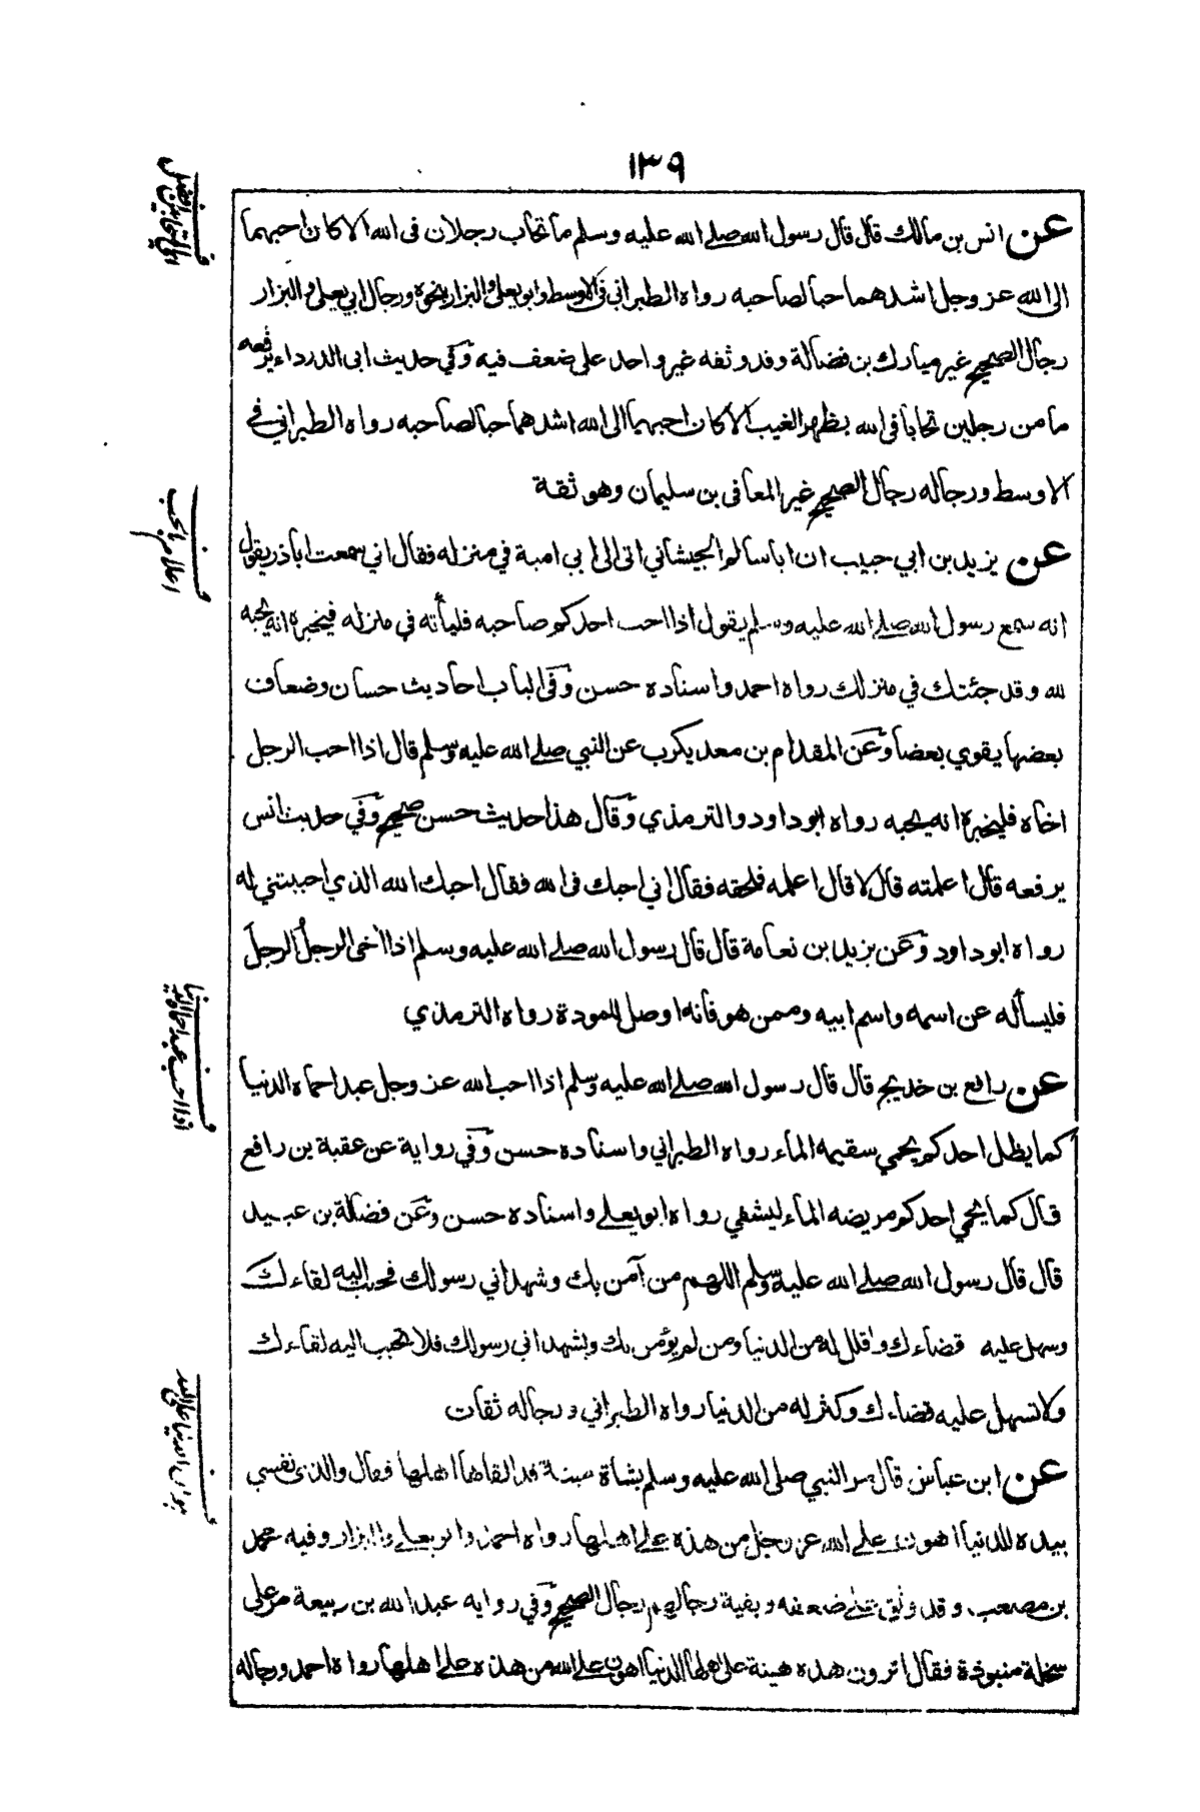 ١٣٩
عن انس بن مالك قال قال رسول الله صلے الله عليه وسلم ما تحاب رجلان فى الله الا كان احبهما
الى الله عز وجل اشدهما حبا لصاحبه رواه الطبرانى فى الاوسط وابو يعلى والبزار بنحوه ورجال ابي يعلى والبزار
رجال الصحيح غير مبارك بن فضالة وقد وثقه غير واحد على ضعف فيه وفي حديث ابى الدرداء يرفعه
ما من رجلين تحابا فى الله بظهر الغيب الا كان احبهما الى الله اشدهما حبا لصاحبه رواه الطبراني في
الاوسط ورجاله رجال الصحيح غير المعافى بن سليمان وهو ثقة
عن يزيد بن ابي حبيب ان ابا سالم الجيشاني اتى الى ابي امية في منزله فقال اني سمعت اباذر يقول
انه سمع رسول الله صلے الله عليه وسلم يقول اذا احب احدكم صاحبه فليأته في منزله فيخبره انه يحبه
لله وقد جئتك في منزلك رواه احمد واسناده حسن وفى الباب احاديث حسان وضعاف
بعضها يقوي بعضا وعن المقدام بن معد يكرب عن النبي صلے الله عليه وسلم قال اذا احب الرجل
اخاه فليخبره انه يحبه رواه ابو داود والترمذي وقال هذا حديث حسن صحيح وفي حديث انس
يرفعه قال اعلمته قال لا قال اعلمه فلحقه فقال اني احبك فى الله فقال احبك الله الذي احببتني له
رواه ابو داود وعن يزيد بن نعامة قال قال رسول الله صلے الله عليه وسلم اذا اٰخى الرجلُ الرجلَ
فليسأله عن اسمه واسم ابيه وممن هو فانه اوصل للمودة رواه الترمذي
عن رافع بن خديج قال قال رسول الله صلے الله عليه وسلم اذا احب الله عز وجل عبدا حماه الدنيا
كما يظل احدكم يحمي سقيمه الماء رواه الطبراني واسناده حسن وفي رواية عن عقبة بن رافع
قال كما يحمي احدكم مريضه الماء ليشفي رواه ابو يعلے واسناده حسن وعن فضالة بن عبيد
قال قال رسول الله صلے الله عليه وسلم اللهم من آمن بك وشهد اني رسولك فحبب اليه لقاءك
وسهل عليه قضاءك واقلل له من الدنيا ومن لم يؤمن بك ويشهد اني رسولك فلا تحبب اليه لقاءك
ولا تسهل عليه قضاءك وكثر له من الدنيا رواه الطبراني ورجاله ثقات
عن ابن عباس قال مر النبي صلى الله عليه وسلم بشاة ميتة قد القاها اهلها فقال والذي نفسي
بيده للدنيا اهون علے الله عز وجل من هذه علے اهلها رواه احمد وابو يعلے والبزار وفيه محمد
بن مصعب وقد وثق على ضعفه وبقية رجالهم رجال الصحيح وفي رواية عبد الله بن ربيعة مر على
سخلة منبوذة فقال اترون هذه هينة على اهلها الدنيا اهون علے الله من هذه علے اهلها رواه احمد ورجاله
ف
اي المتحابين افضل
ف
اعلام الحب
ف
اذا احب عبدا حماه الدنيا
ف
هوان الدنيا على الله